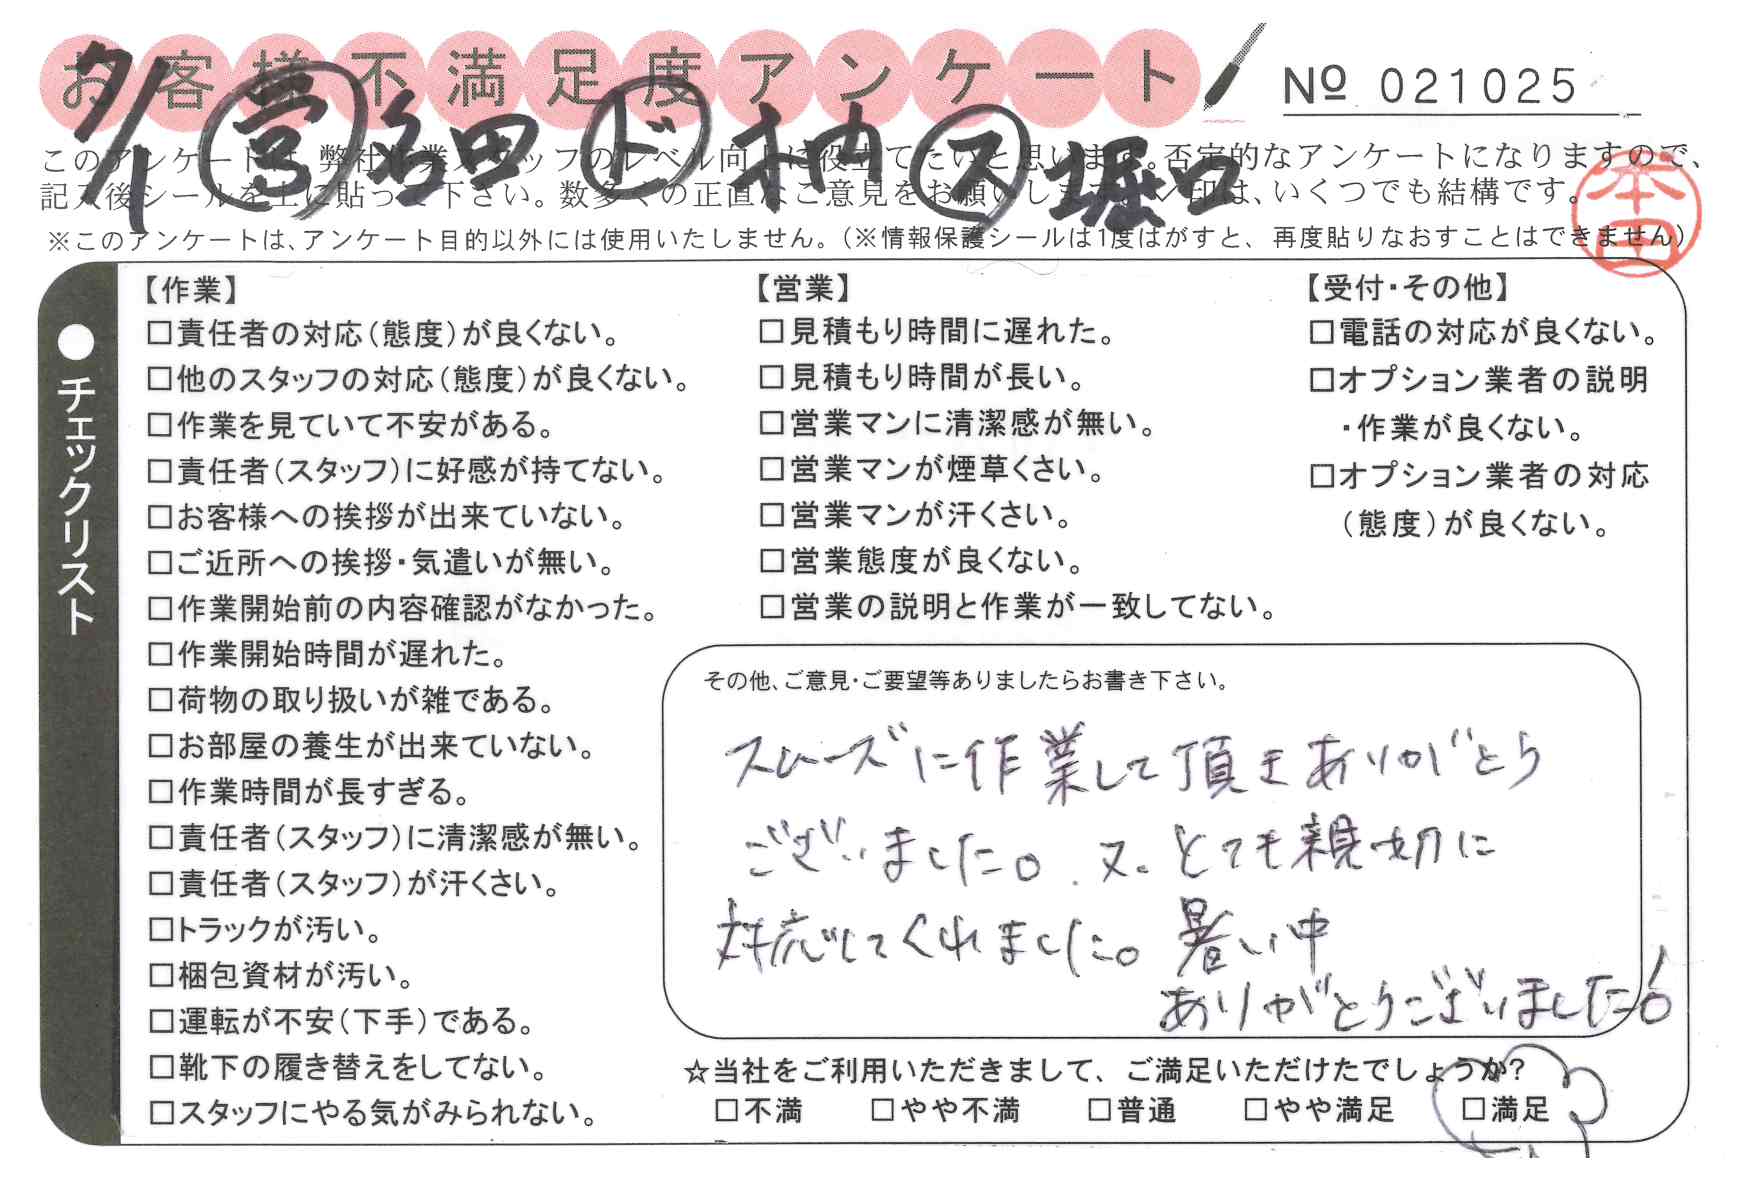 お客様不満足度アンケート
№ 021025
営 ド 木内 ス 堀口
このアンケートは、弊社作業スタッフのレベル向上に役立てたいと思います。否定的なアンケートになりますので、
記入後シールを上に貼って下さい。数多くの正直なご意見をお願いします。✓印は、いくつでも結構です。
本田
※このアンケートは、アンケート目的以外には使用いたしません。（※情報保護シールは1度はがすと、再度貼りなおすことはできません）
●チェックリスト
【作業】
□責任者の対応（態度）が良くない。
□他のスタッフの対応（態度）が良くない。
□作業を見ていて不安がある。
□責任者（スタッフ）に好感が持てない。
□お客様への挨拶が出来ていない。
□ご近所への挨拶・気遣いが無い。
□作業開始前の内容確認がなかった。
□作業開始時間が遅れた。
□荷物の取り扱いが雑である。
□お部屋の養生が出来ていない。
□作業時間が長すぎる。
□責任者（スタッフ）に清潔感が無い。
□責任者（スタッフ）が汗くさい。
□トラックが汚い。
□梱包資材が汚い。
□運転が不安（下手）である。
□靴下の履き替えをしてない。
□スタッフにやる気がみられない。
【営業】
□見積もり時間に遅れた。
□見積もり時間が長い。
□営業マンに清潔感が無い。
□営業マンが煙草くさい。
□営業マンが汗くさい。
□営業態度が良くない。
□営業の説明と作業が一致してない。
【受付・その他】
□電話の対応が良くない。
□オプション業者の説明
・作業が良くない。
□オプション業者の対応
（態度）が良くない。
その他、ご意見・ご要望等ありましたらお書き下さい。
スムーズに作業して頂きありがとう
ございました。又、とても親切に
対応してくれました。暑い中
ありがとうございました!
☆当社をご利用いただきまして、ご満足いただけたでしょうか?
□不満 □やや不満 □普通 □やや満足 □満足